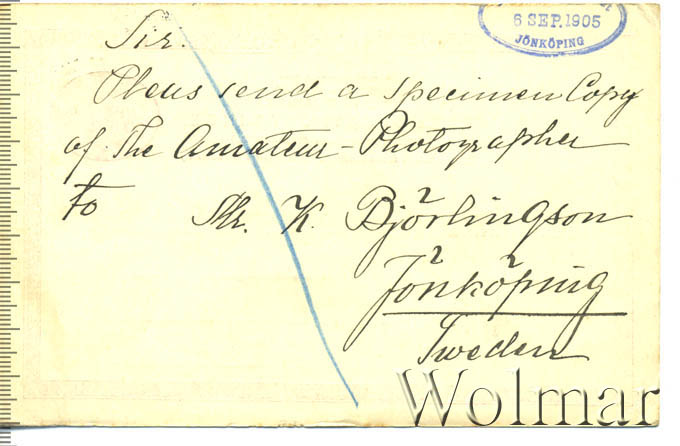 6 SEP. 1905
JÖNKÖPING
Sir.
Pleas send a specimen Copy
of The Amateur-Photographer
to Mr. K. Björlingson
Jönköping
Sweden
Wolmar